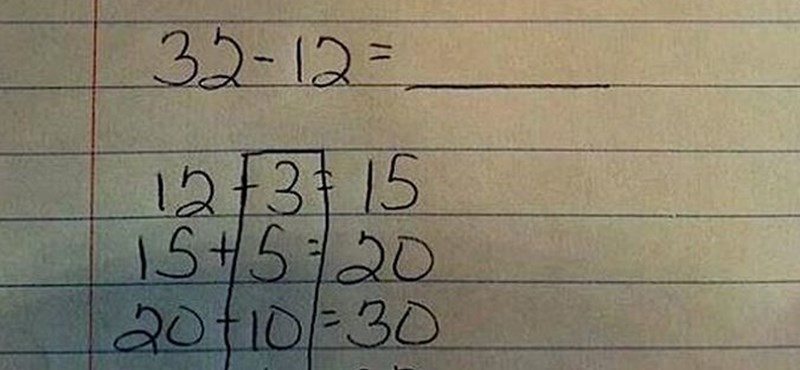 32-12=
12+3=15
15+5=20
20+10=30